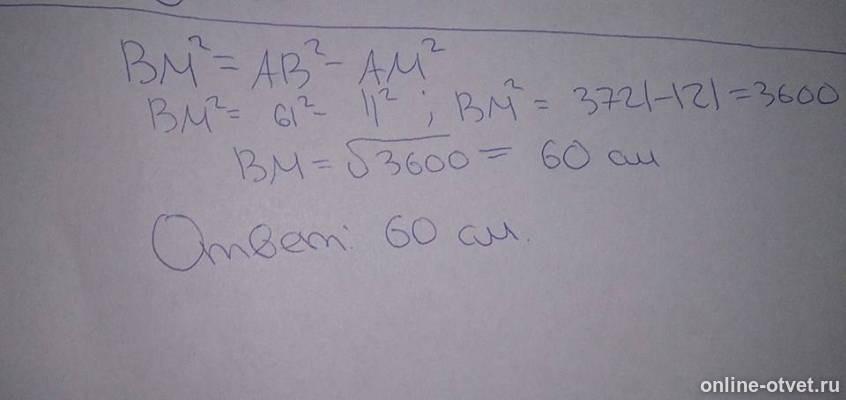 BM² = AB² - AM²
BM² = 61² - 11² ; BM² = 3721 - 121 = 3600
BM = √3600 = 60 см
Ответ: 60 см.
online-otvet.ru